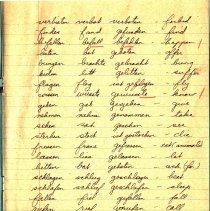 verbieten verbot verboten - forbid
finden fand gefunden - find
befehlen befahl befohlen -
bieten bot geboten - offer
bringen brachte gebracht - bring
leiden litt gelitten - suffer
fliegen flog ist geflogen - fly
wissen wusste gewusst - know
geben gab gegeben - give
nehmen nahm genommen - take
sehen sah gesehen - see
sterben starb ist gestorben - die
fressen frass gefressen - eat (animals)
lassen liess gelassen - let
bitten bat gebeten - ask (for)
schlagen schlug geschlagen - beat
schlafen schlief geschlafen - sleep
fallen fiel gefallen - fall
rufen rief gerufen - call